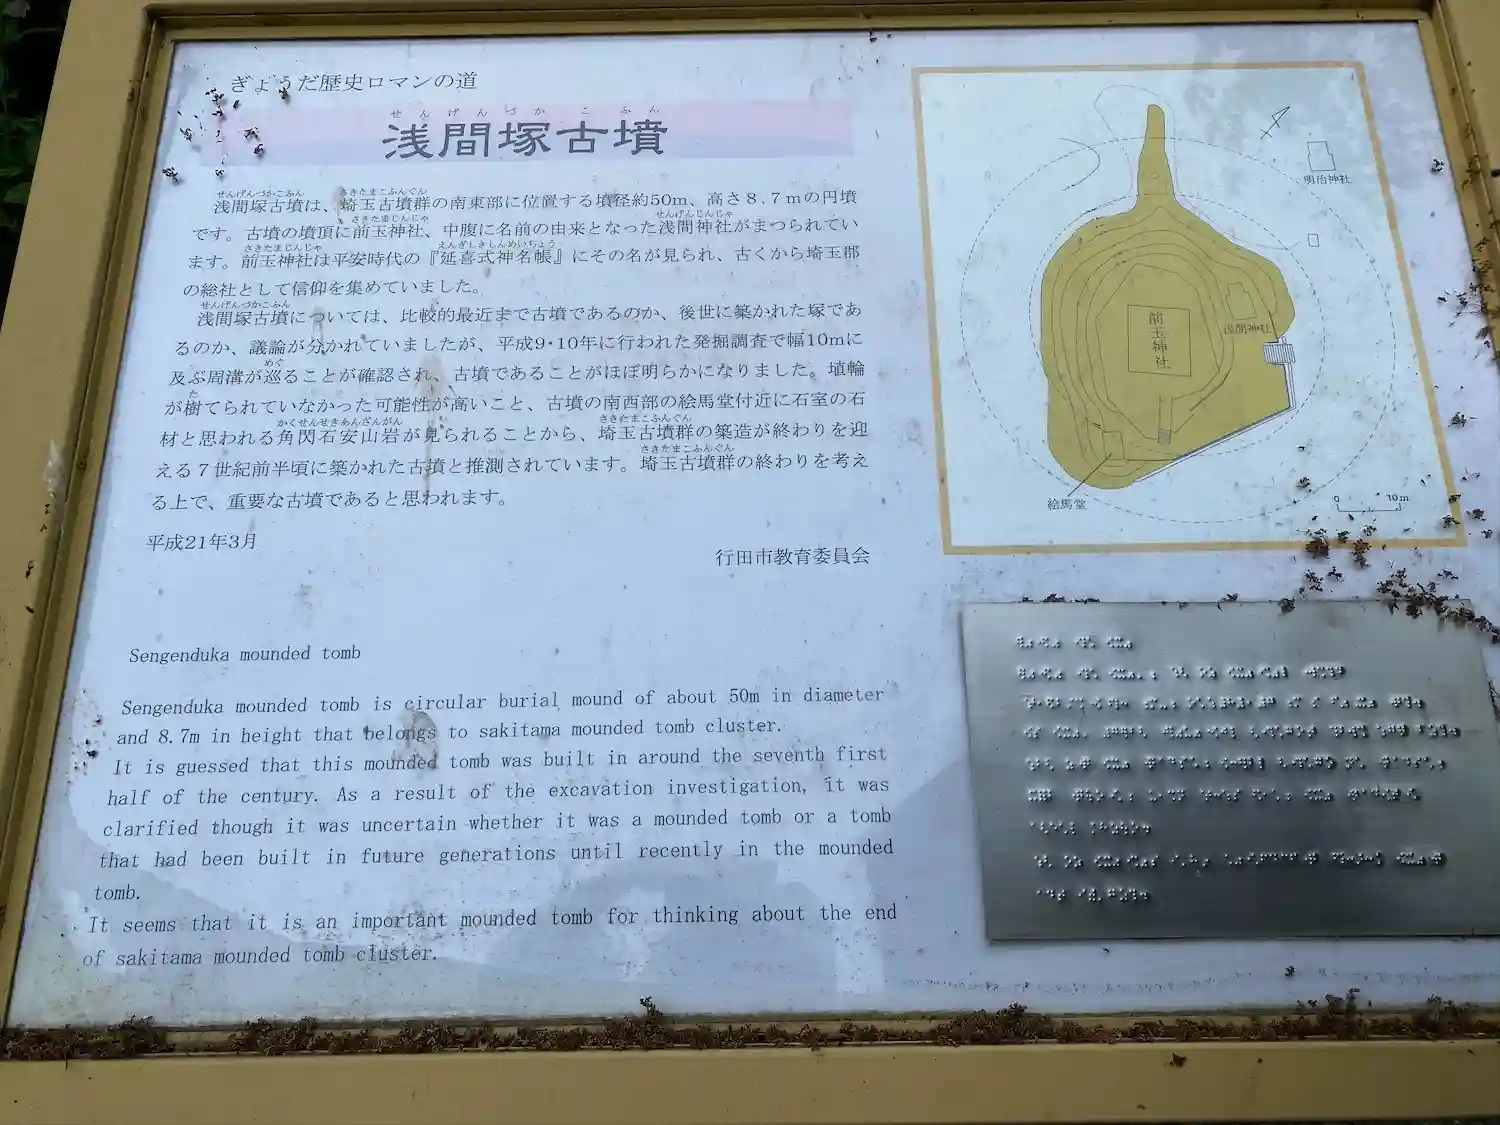 ぎょうだ歴史ロマンの道
せんげんづかこふん
浅間塚古墳
せんげんづかこふん さきたまこふんぐん
浅間塚古墳は、埼玉古墳群の南東部に位置する墳径約50m、高さ8.7mの円墳
さきたまじんじゃ せんげんじんじゃ
です。古墳の墳頂に前玉神社、中腹に名前の由来となった浅間神社がまつられてい
さきたまじんじゃ えんぎしきしんめいちょう
ます。前玉神社は平安時代の『延喜式神名帳』にその名が見られ、古くから埼玉郡
の総社として信仰を集めていました。
せんげんづかこふん
浅間塚古墳については、比較的最近まで古墳であるのか、後世に築かれた塚であ
るのか、議論が分かれていましたが、平成9・10年に行われた発掘調査で幅10mに
めぐ
及ぶ周溝が巡ることが確認され、古墳であることがほぼ明らかになりました。埴輪
た
が樹てられていなかった可能性が高いこと、古墳の南西部の絵馬堂付近に石室の石
かくせんせきあんざんがん さきたまこふんぐん
材と思われる角閃石安山岩が見られることから、埼玉古墳群の築造が終わりを迎
さきたまこふんぐん
える7世紀前半頃に築かれた古墳と推測されています。埼玉古墳群の終わりを考え
る上で、重要な古墳であると思われます。
平成21年3月
行田市教育委員会
Sengenduka mounded tomb
Sengenduka mounded tomb is circular burial mound of about 50m in diameter
and 8.7m in height that belongs to sakitama mounded tomb cluster.
It is guessed that this mounded tomb was built in around the seventh first
half of the century. As a result of the excavation investigation, it was
clarified though it was uncertain whether it was a mounded tomb or a tomb
that had been built in future generations until recently in the mounded
tomb.
It seems that it is an important mounded tomb for thinking about the end
of sakitama mounded tomb cluster.
明治神社
前玉神社
浅間神社
絵馬堂
0 10m